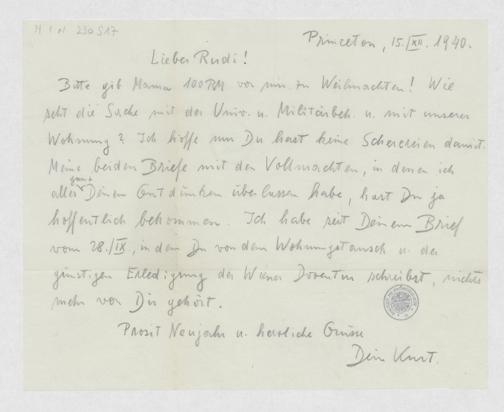 Princeton, 15./XII. 1940.
Lieber Rudi!
Bitte gib Mama 100 RM von mir zu Weihnachten! Wie
steht die Sache mit der Univ. u. Militärbeh. u. mit unserer
Wohnung? Ich hoffe nur Du hast keine Scherereien damit.
Meine beiden Briefe mit den Vollmachten, in denen ich
alles ganz Deinem Gutdünken überlassen habe, hast Du ja
hoffentlich bekommen. Ich habe seit Deinem Brief
vom 28./IX, in dem Du von dem Wohnungstausch u. der
günstigen Erledigung der Wiener Dozentur schreibst, nichts
mehr von Dir gehört.
Prosit Neujahr u. herzliche Grüsse
Dein Kurt.